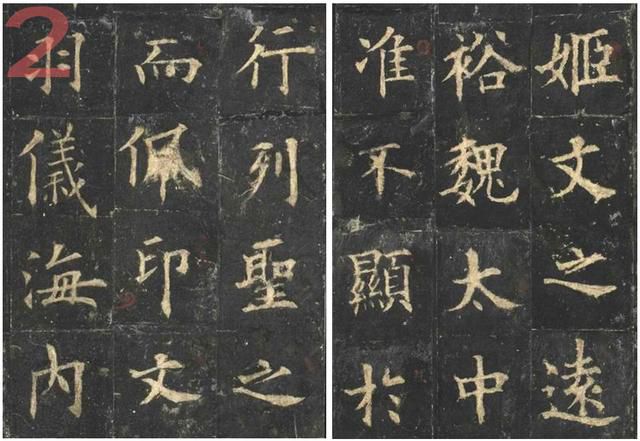 2
姬文之遠
裕魏太中
准不顯於
行列聖之
而佩印文
羽儀海内